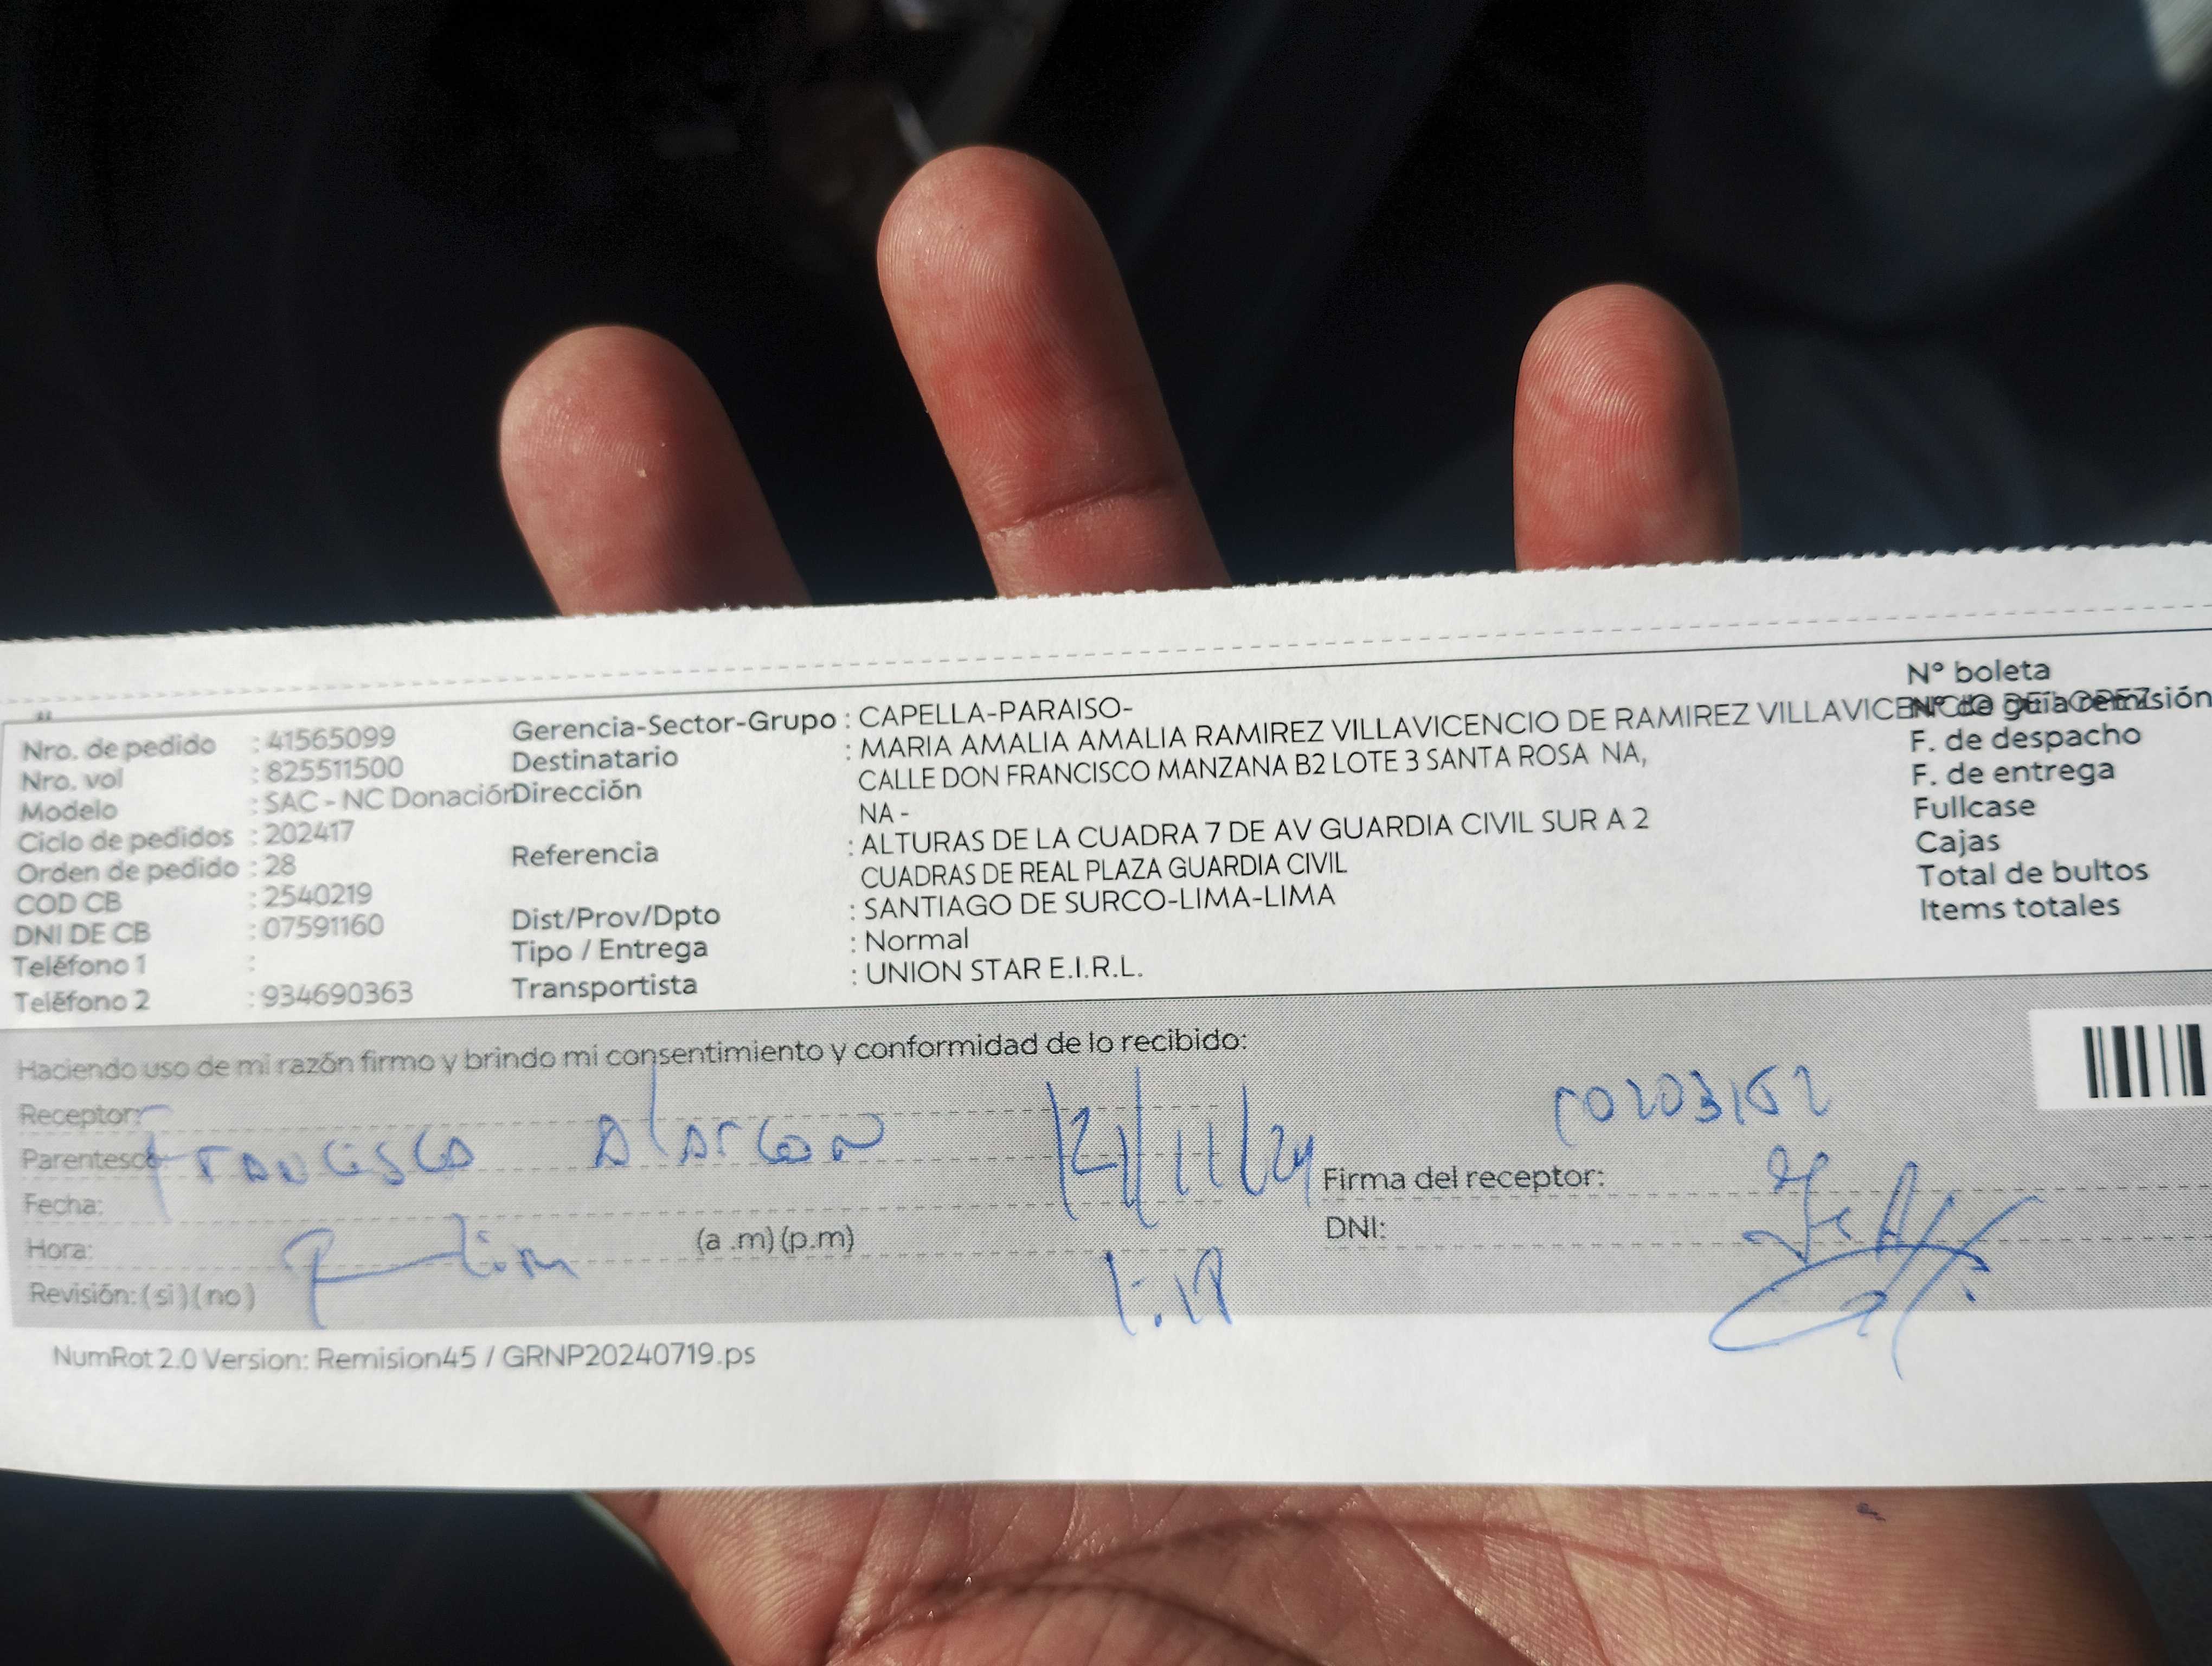 Nro. de pedido : 41565099
Nro. vol : 825511500
Modelo : SAC - NC Donación
Ciclo de pedidos : 202417
Orden de pedido : 28
COD CB : 2540219
DNI DE CB : 07591160
Teléfono 1 :
Teléfono 2 : 934690363
Gerencia-Sector-Grupo : CAPELLA-PARAISO-
Destinatario : MARIA AMALIA AMALIA RAMIREZ VILLAVICENCIO DE RAMIREZ VILLAVICENCIO DE LOPEZ
Dirección CALLE DON FRANCISCO MANZANA B2 LOTE 3 SANTA ROSA NA,
NA -
Referencia : ALTURAS DE LA CUADRA 7 DE AV GUARDIA CIVIL SUR A 2
CUADRAS DE REAL PLAZA GUARDIA CIVIL
Dist/Prov/Dpto : SANTIAGO DE SURCO-LIMA-LIMA
Tipo / Entrega : Normal
Transportista : UNION STAR E.I.R.L.
Nº boleta
Nº de guía remisión
F. de despacho
F. de entrega
Fullcase
Cajas
Total de bultos
Items totales
Haciendo uso de mi razón firmo y brindo mi consentimiento y conformidad de lo recibido:
Receptor:
Parentesco Francisco Alarcon
Fecha:
Hora: (a .m) (p.m)
Revisión: ( si ) ( no )
Firma del receptor:
DNI:
NumRot 2.0 Version: Remision45 / GRNP20240719.ps